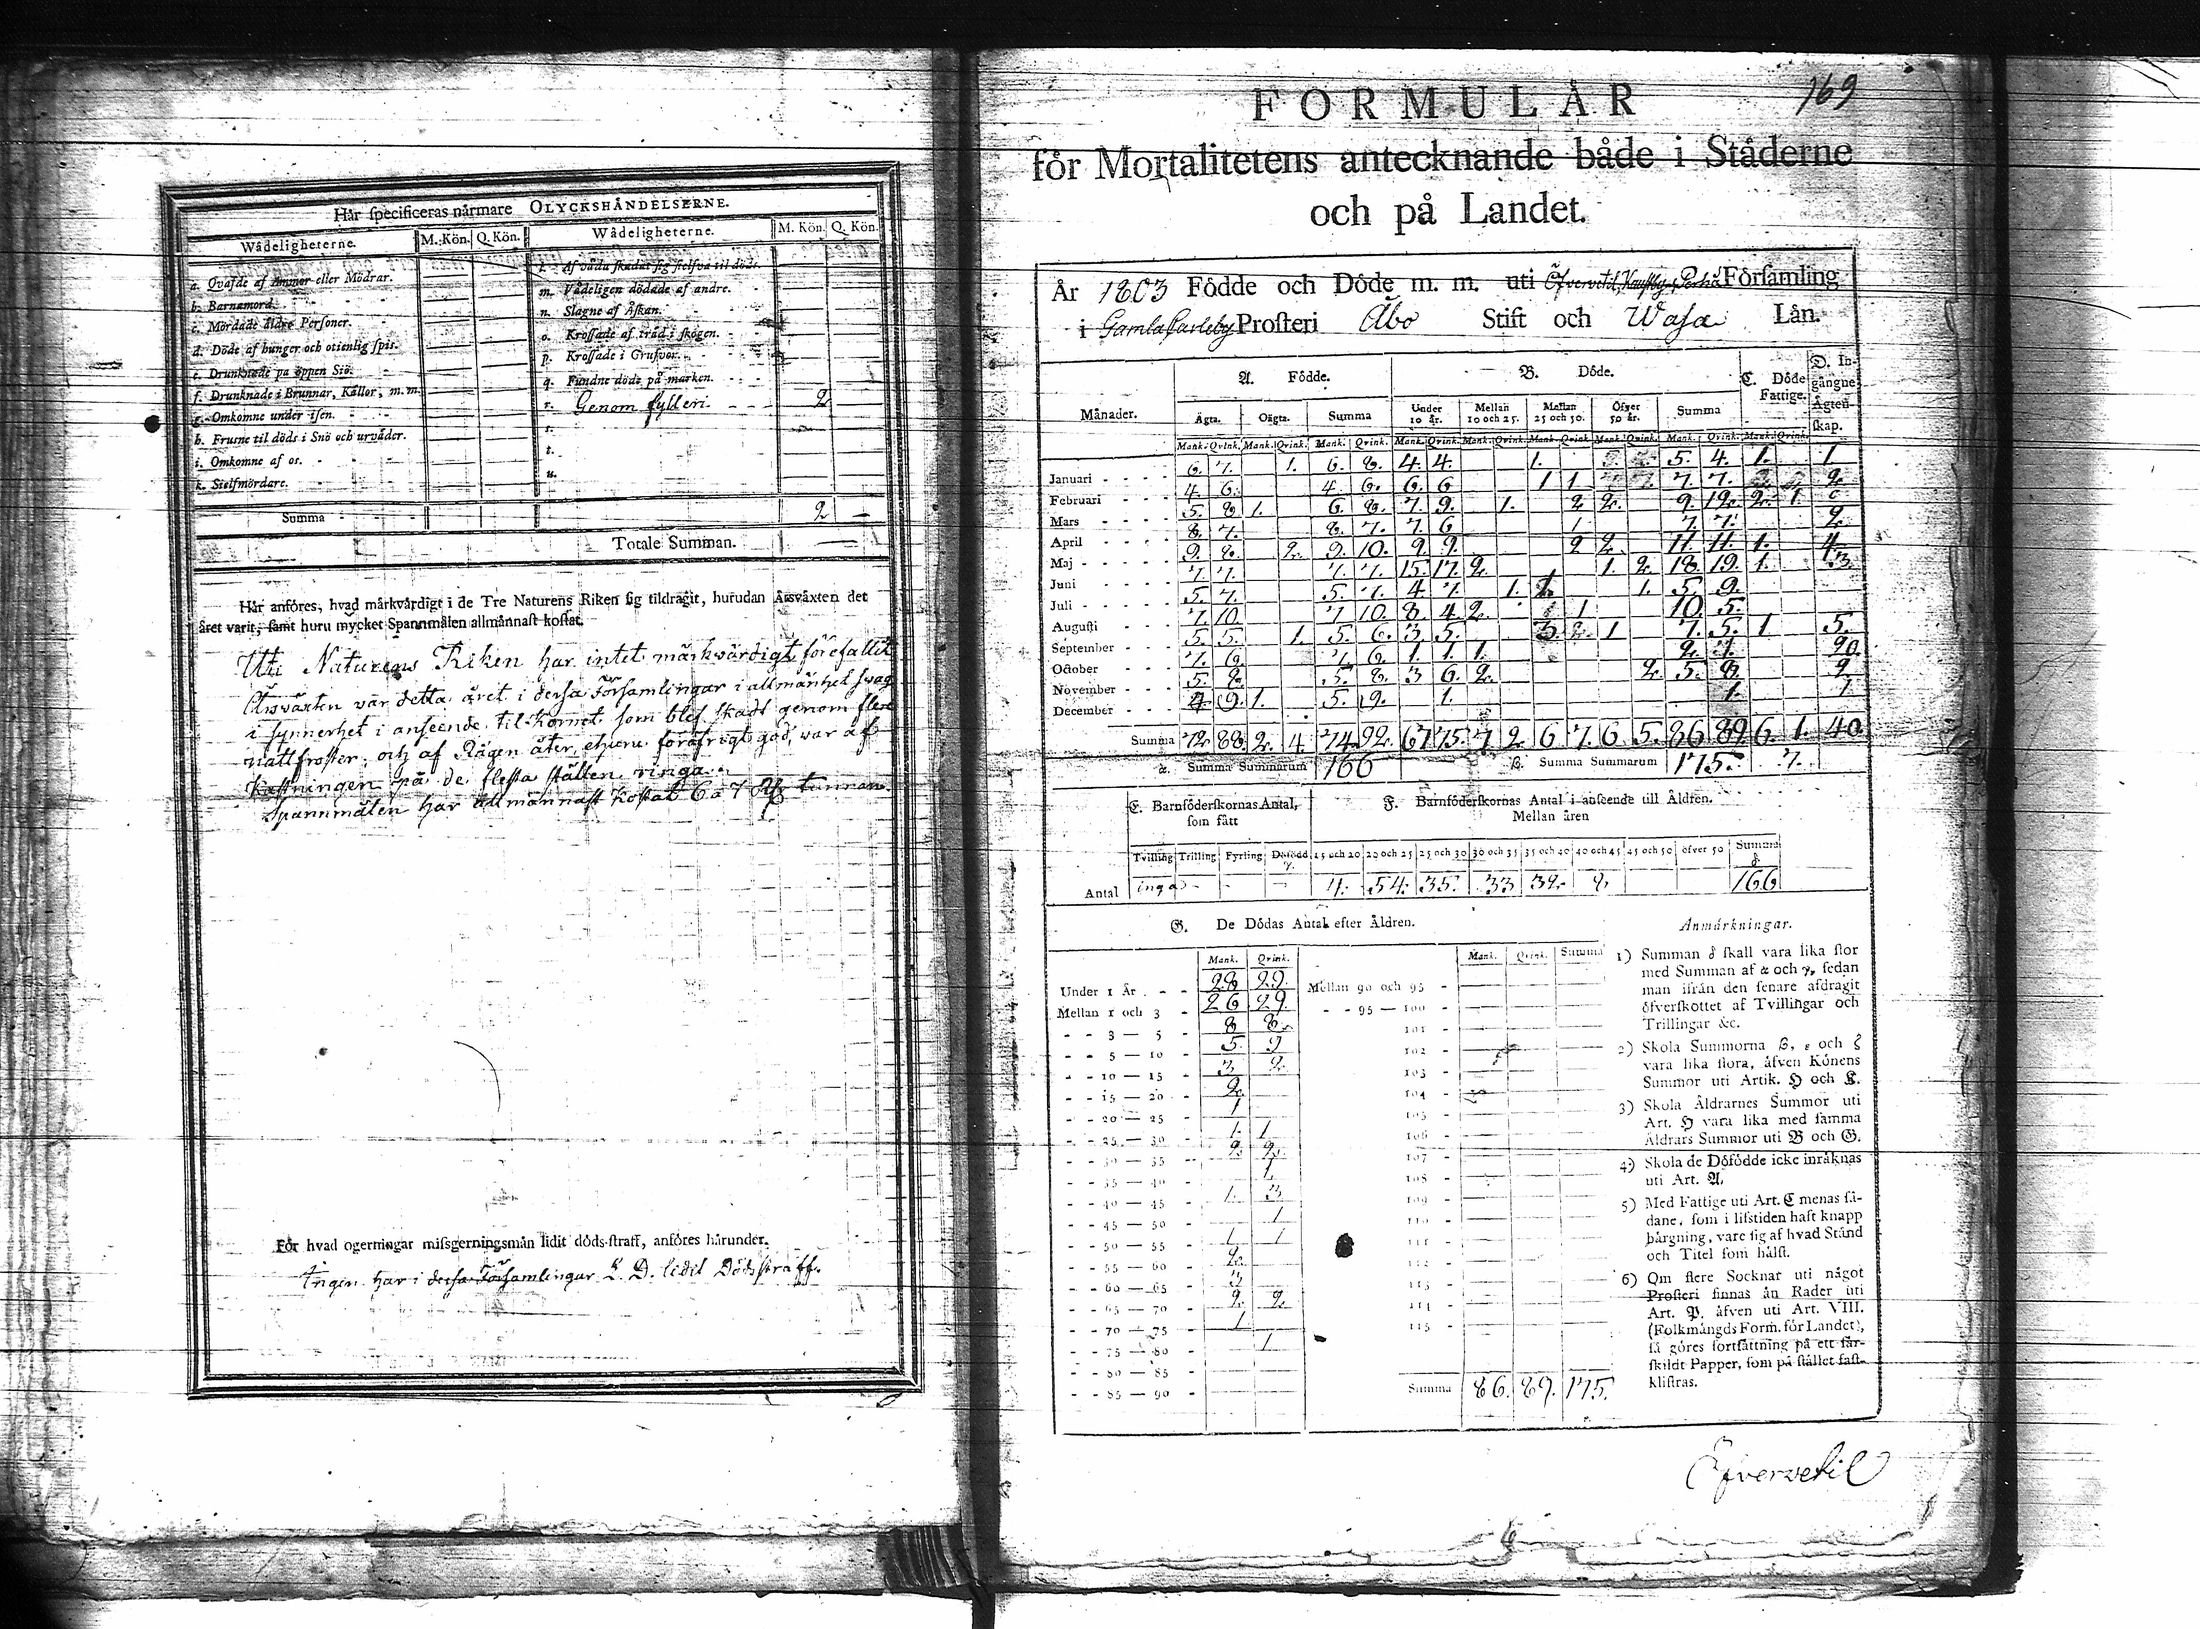 Här specificeras närmare OLYCKSHÄNDELSERNE.
Wådeligheterne. M. Kön. Q. Kön. Wådeligheterne. M. Kön. Q. Kön.
a. Qvafde af Ammor eller Mödrar.
b. Barnamord.
c. Mördade äldre Personer.
d. Döde af hunger och otienlig spis.
e. Drunknade på öppen Siö.
f. Drunknade i Brunnar, Källor, m. m.
g. Omkomne under isen.
h. Frusne til döds i Snö och urväder.
i. Omkomne af os.
k. Sielfmördare.
l. Af våda skadat sig sielfva til döds.
m. Vådeligen dödade af andre.
n. Slagne af Åskan.
o. Krossade af träd i skogen.
p. Krossade i Grufvor.
q. Fundne döde på marken.
r. Genom fylleri 2
s.
t.
u.
Summa 2 -
Totale Summan.
Här anföres, hvad märkvärdigt i de Tre Naturens Riken sig tildragit, hurudan Årsväxten det
året varit, samt huru mycket Spannmålen allmännast kostat.
Uti Naturens Riken har intet märkvärdigt förefallit
Årsväxten var detta året i dessa Församlingar i allmänhet svag
i synnerhet i anseende til Kornet som blef skadt genom flere
nattfroster, och af Rågen åter, ehuru föröfrigt god, var af
Kastningen på de flesta ställen ringa.
Spannmålen har allmännast kostat 6 a 7 tunnan
För hvad ogerningar missgerningsmän lidit döds-straff, anföres härunder.
Ingen har i dessa Församlingar lidit Dödsstraff.
169
FORMULÄR
för Mortalitetens antecknande både i Städerne
och på Landet.
År 1803 Födde och Döde m. m. uti Öfvervetil, Kaustby, Perho Församling
i Gamlacarleby Prosteri Åbo Stift och Wasa Län.
Månader. A. Födde. B. Döde. C. Döde Fattige. D. Ingångne Ägtenskap.
Ägta. Oägta. Summa Under 10 år. Mellan 10 och 25. Mellan 25 och 50. Öfver 50 år. Summa
Mank. Qvink. Mank. Qvink. Mank. Qvink. Mank. Qvink. Mank. Qvink. Mank. Qvink. Mank. Qvink. Mank. Qvink. Mank. Qvink.
Januari 6. 7. 1. 6. 8. 4. 4. 1. 5. 4. 1. 1
Februari 4. 6. 4. 6. 6. 6 1 1 7. 7. 2.
Mars 5. 8 1. 6. 8. 7. 9. 1. 2 2. 9. 12. 2. 1.
April 8. 7. 8. 7. 7. 6 1 7. 7. 2
Maj 9. 8. 2. 9. 10. 9. 9. 2 2. 11. 11. 1. 4
Juni 7. 7. 7. 7. 15. 17. 2. 1. 2. 18. 19. 1. 3
Juli 5. 7. 5. 7. 4. 7. 1. 1. 1. 5. 9.
Augusti 7 10. 7 10. 8. 4. 2. 1 10. 5.
September 5. 5. 1. 5. 6. 3 5. 3. 2. 1 7. 5. 1 5.
October 7. 6. 7. 6. 1. 1. 1. 2. 1. 20.
November 5. 8. 5. 8. 3 6. 2. 2. 5. 8. 2
December 4 9. 1. 5. 9. 1. 1. 1.
Summa 72. 88. 2. 4. 74. 92. 67. 75. 7 2 6 7. 6. 5. 86 89 6. 1. 40.
α. Summa Summarum 166 β. Summa Summarum 175. 7.
E. Barnföderskornas Antal, som fått
F. Barnföderskornas Antal i anseende till Åldren.
Mellan åren
Tvilling Trilling Fyrling Dödfödd γ. 15 och 20 20 och 25 25 och 30 30 och 35 35 och 40 40 och 45 45 och 50 öfver 50 Summa δ
Antal inga - - - 4. 54. 35. 33 32. 166
G. De Dödas Antal efter Åldren.
Mank. Qvink. Mank. Qvink. Summa
Under 1 År 28 29. Mellan 90 och 95
Mellan 1 och 3 26 29. 95 — 100
3 — 5 8 8. 101
5 — 10 5. 9 102
10 — 15 3 2. 103
15 — 20 2. 104
20 — 25 1 105
25 — 30 1. 1 106
30 — 35 2. 2. 107
35 — 40 1. 108
40 — 45 1. 3 109
45 — 50 1 110
50 — 55 1 1 111
55 — 60 2. 112
60 — 65 3 113
65 — 70 2. 2. 114
70 — 75 1. 115
75 — 80 1
80 — 85
85 — 90 Summa 86. 89. 175.
Anmärkningar.
1) Summan δ skall vara lika stor
med Summan af α och γ, sedan
man ifrån den senare afdragit
öfverskottet af Tvillingar och
Trillingar &c.
2) Skola Summorna β, ε och ζ
vara lika stora, äfven Könens
Summor uti Artik. H och K.
3) Skola Åldrarnes Summor uti
Art. H vara lika med samma
Åldrars Summor uti B och G.
4) Skola de Dödfödde icke inräknas
uti Art. A.
5) Med Fattige uti Art. C menas så-
dane, som i lifstiden haft knapp
bärgning, vare sig af hvad Stånd
och Titel som hälst.
6) Om flere Socknar uti något
Prosteri finnas än Rader uti
Art. P. äfven uti Art. VIII.
(Folkmängds Form. för Landet),
så göres fortsättning på ett sär-
skildt Papper, som på stället fast-
klistras.
Öfvervetil